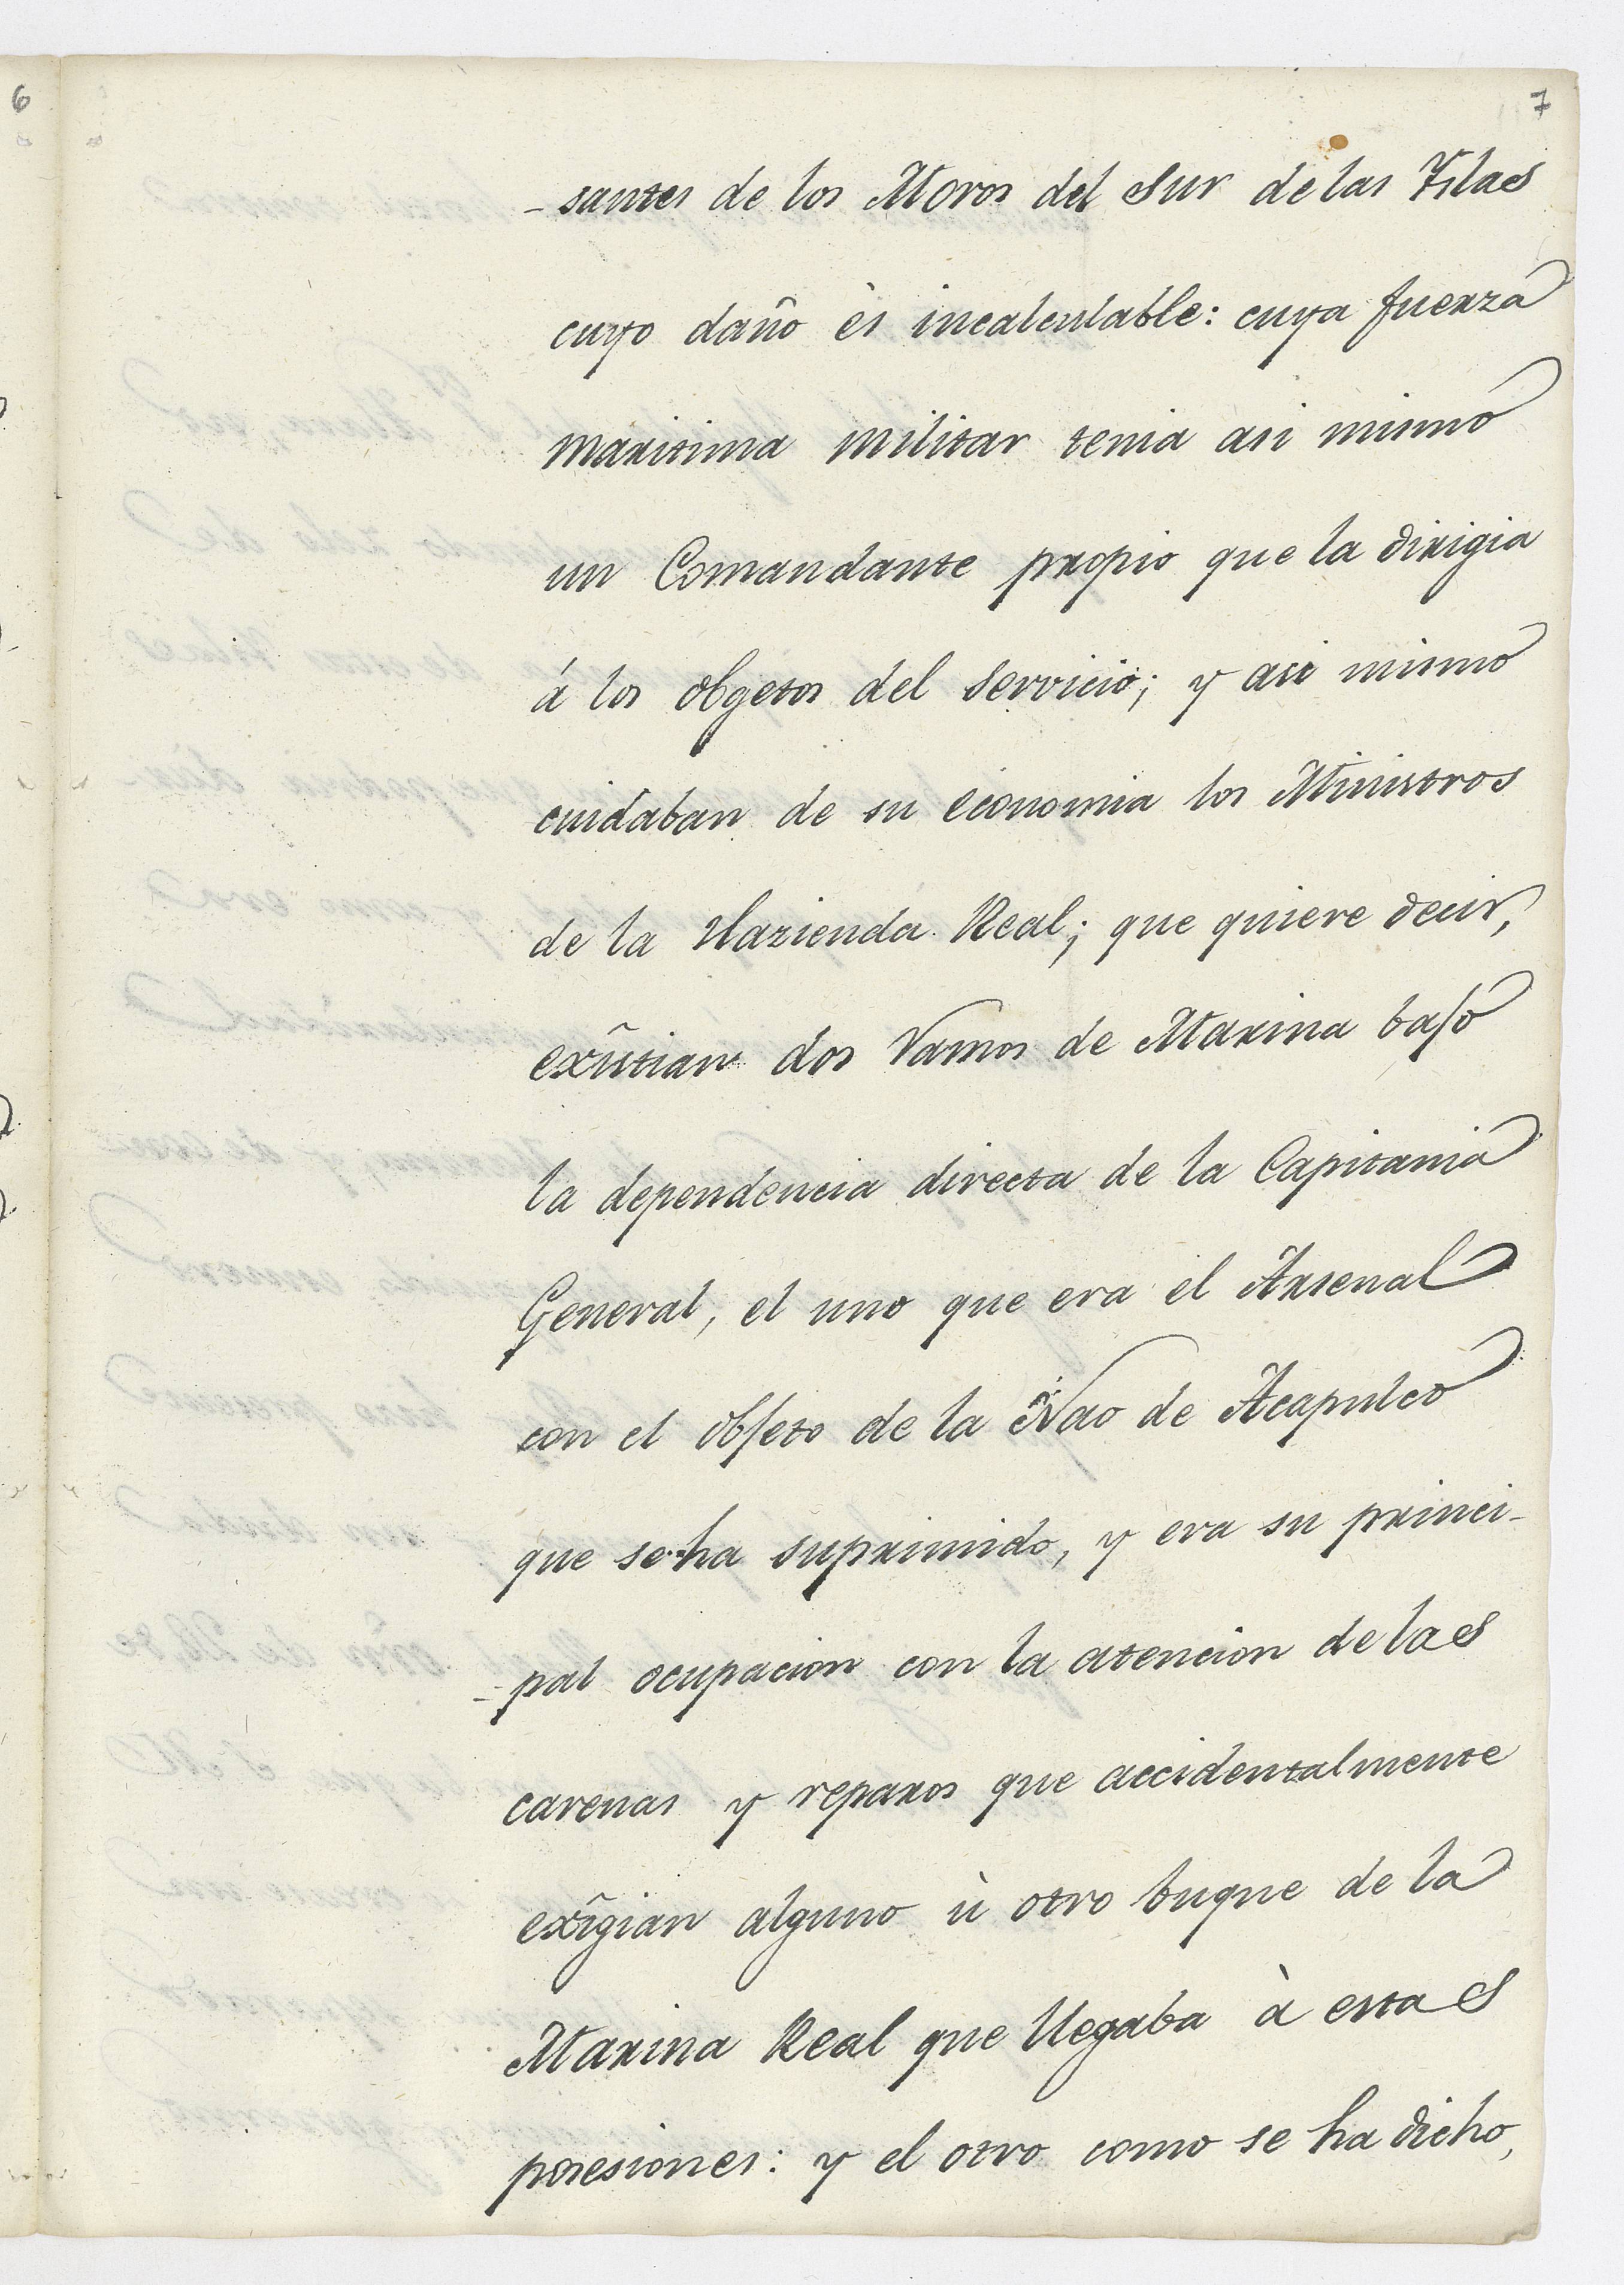 6
7
-santes de los Moros del Sur de las Yslas
cuyo daño ès incalculable: cuya fuerza
maritima militar tenia asi mismo
un Comandante propio que la dirigia
á los obgetos del servicio; y asi mismo
cuidaban de su economia los Ministros
de la Hazienda Real; que quiere decir,
exîstian dos Ramos de Marina bajo
la dependencia directa de la Capitania
General, el uno que era el Arsenal
con el objeto de la Nao de Acapulco
que se ha suprimido, y era su princi-
-pal ocupacion con la atencion de las
carenas y reparos que accidentalmente
exîgian alguno ù otro buque de la
Marina Real que llegaba à estas
posesiones: y el otro como se ha dicho,